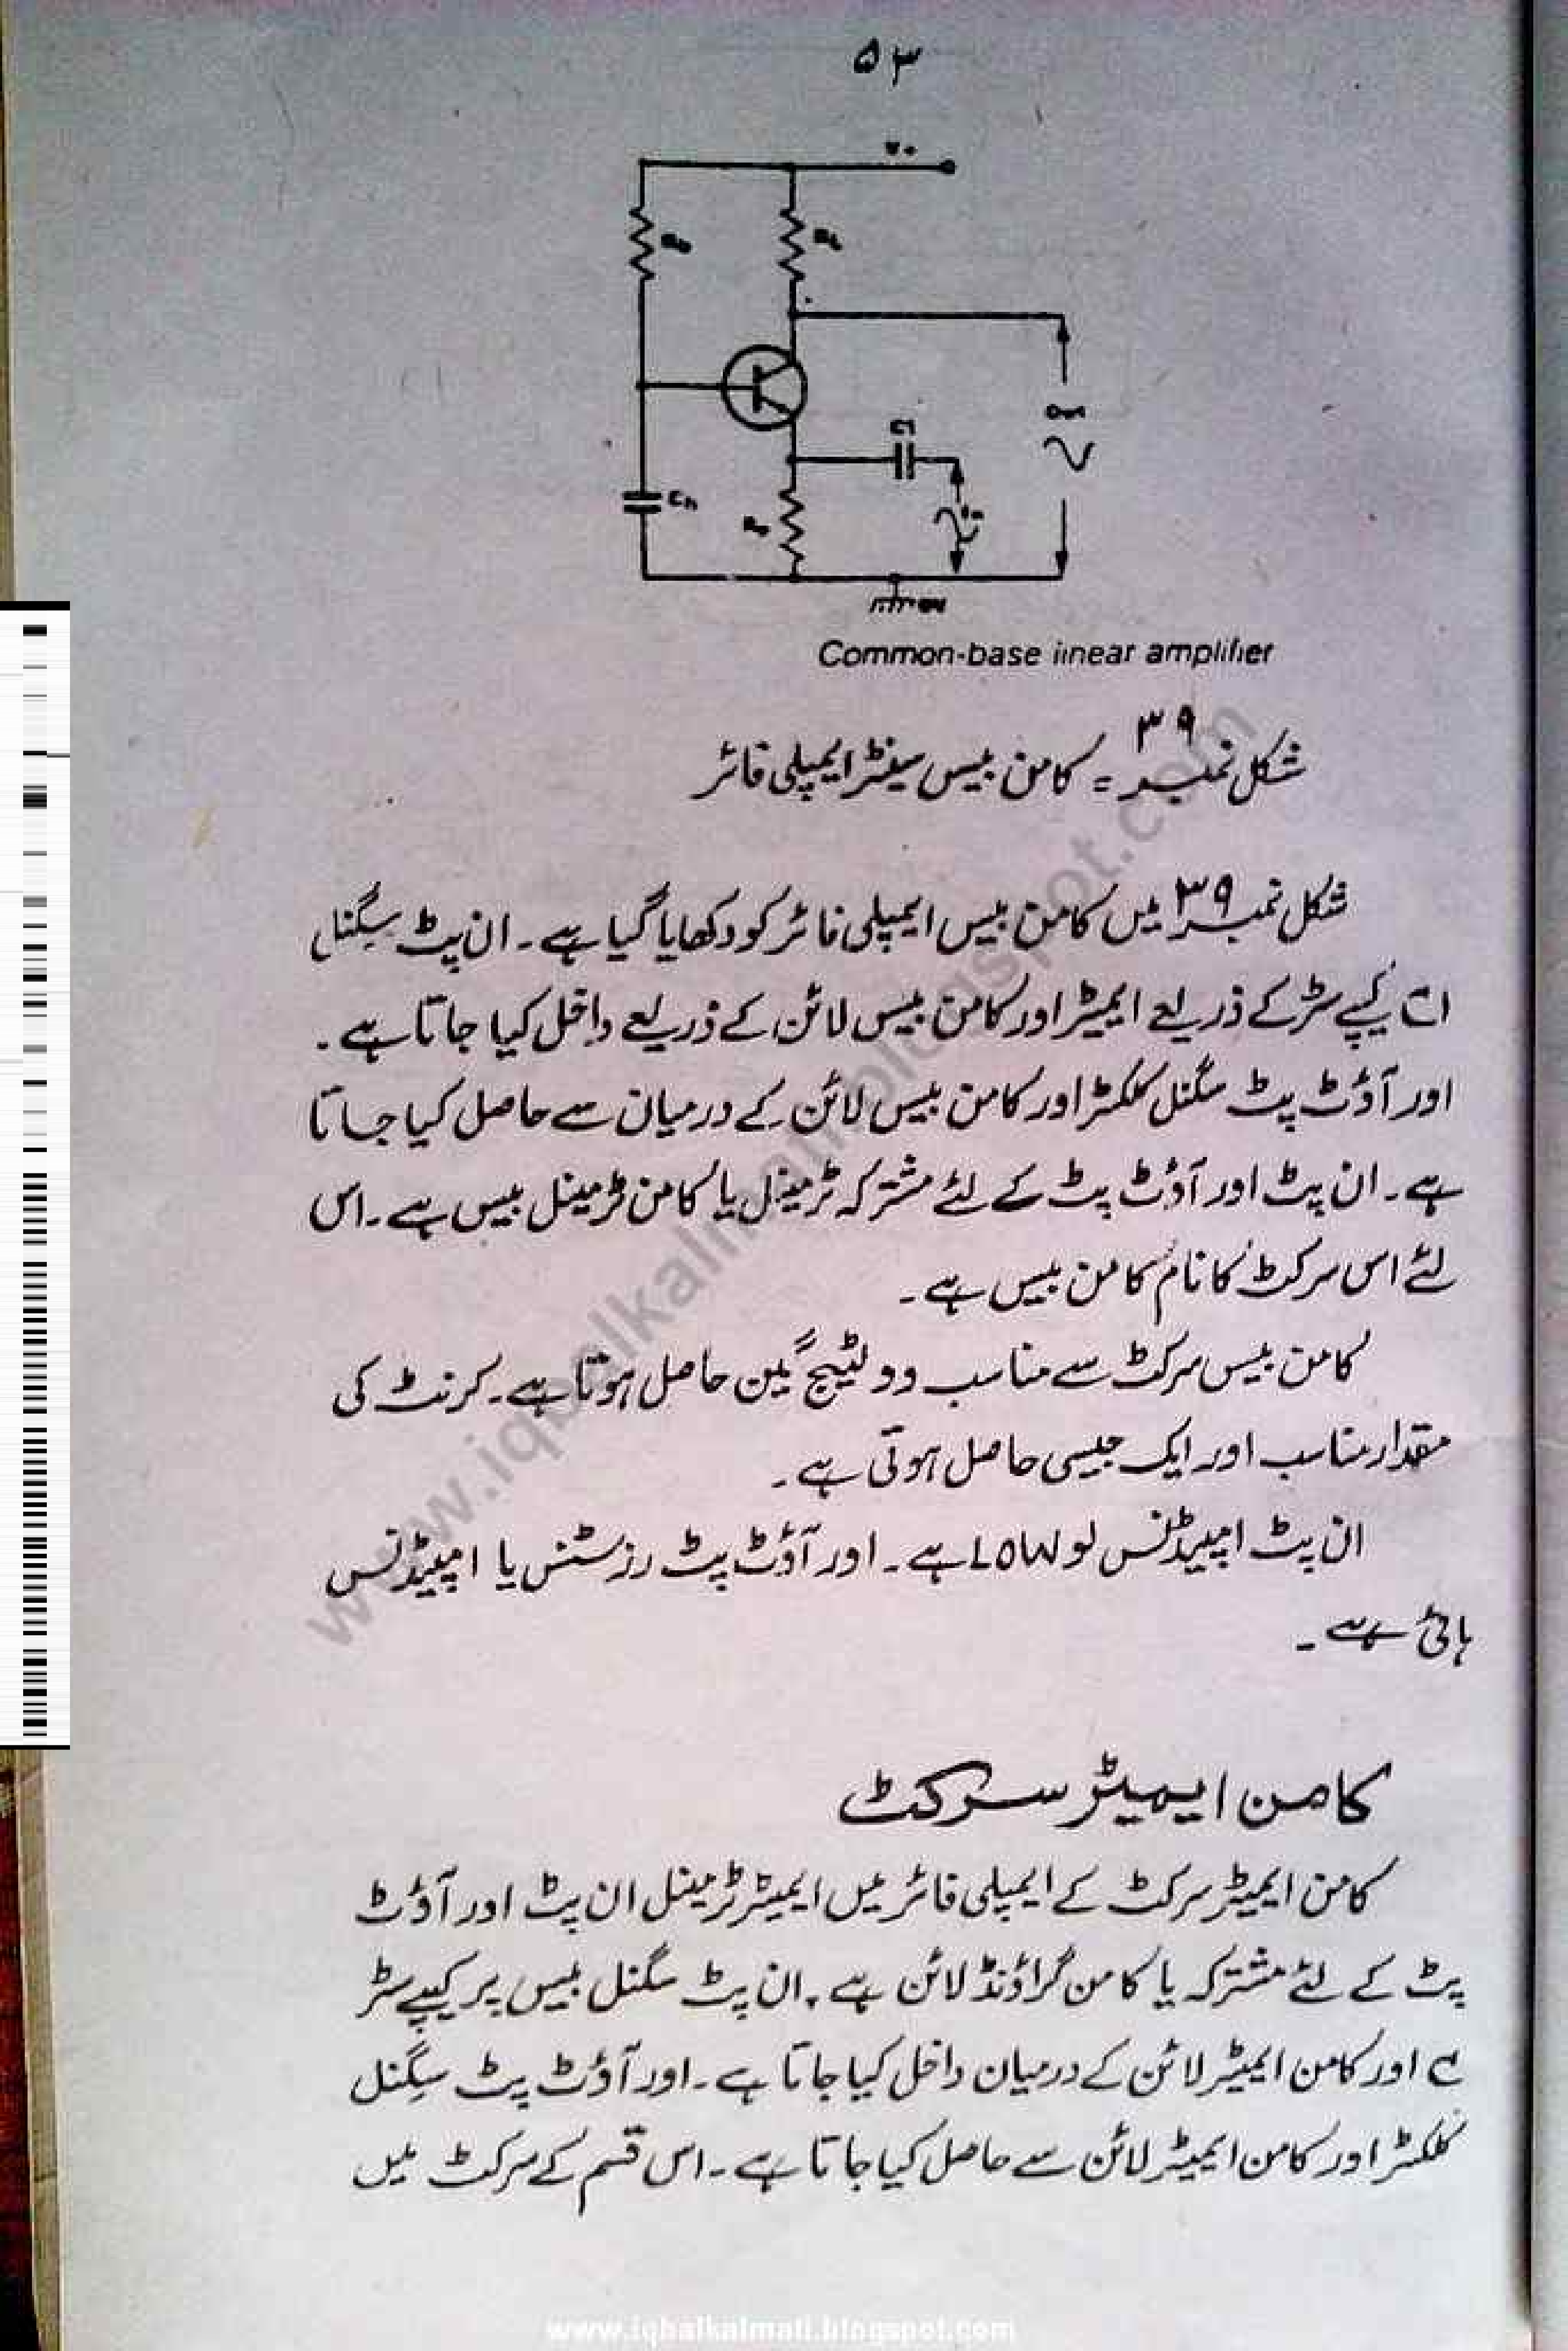 ۵۳
V+
Rb
RL
Out
C1
in
Cb
Re
0V
Common-base linear amplifier
شکل نمبر ۳۹ = کامن بیس سینٹر ایمپلی فائر
شکل نمبر ۳۹ میں کامن بیس ایمپلی فائر کو دکھایا گیا ہے۔ ان پٹ سگنل
کیپے سٹر کے ذریعے ایمیٹر اور کامن بیس لائن کے ذریعے داخل کیا جاتا ہے۔
اور آؤٹ پٹ سگنل کلکٹر اور کامن بیس لائن کے درمیان سے حاصل کیا جاتا
ہے۔ ان پٹ اور آؤٹ پٹ کے لئے مشترکہ ٹرمینل یا کامن ٹرمینل بیس ہے۔ اس
لئے اس سرکٹ کا نام کامن بیس ہے۔
کامن بیس سرکٹ سے مناسب وولٹیج گین حاصل ہوتا ہے۔ کرنٹ کی
مقدار مناسب اور ایک جیسی حاصل ہوتی ہے۔
ان پٹ امپیڈنس لو LOW ہے۔ اور آؤٹ پٹ رزسٹنس یا امپیڈنس
ہائی ہے۔
کامن ایمیٹر سرکٹ
کامن ایمیٹر سرکٹ کے ایمپلی فائر میں ایمیٹر ٹرمینل ان پٹ اور آؤٹ
پٹ کے لئے مشترکہ یا کامن گراؤنڈ لائن ہے۔ ان پٹ سگنل بیس پر کیپے سٹر
اور کامن ایمیٹر لائن کے درمیان داخل کیا جاتا ہے۔ اور آؤٹ پٹ سگنل
کلکٹر اور کامن ایمیٹر لائن سے حاصل کیا جاتا ہے۔ اس قسم کے سرکٹ میں
www.iqbalkalmati.blogspot.com
www.iqbalkalmati.blogspot.com